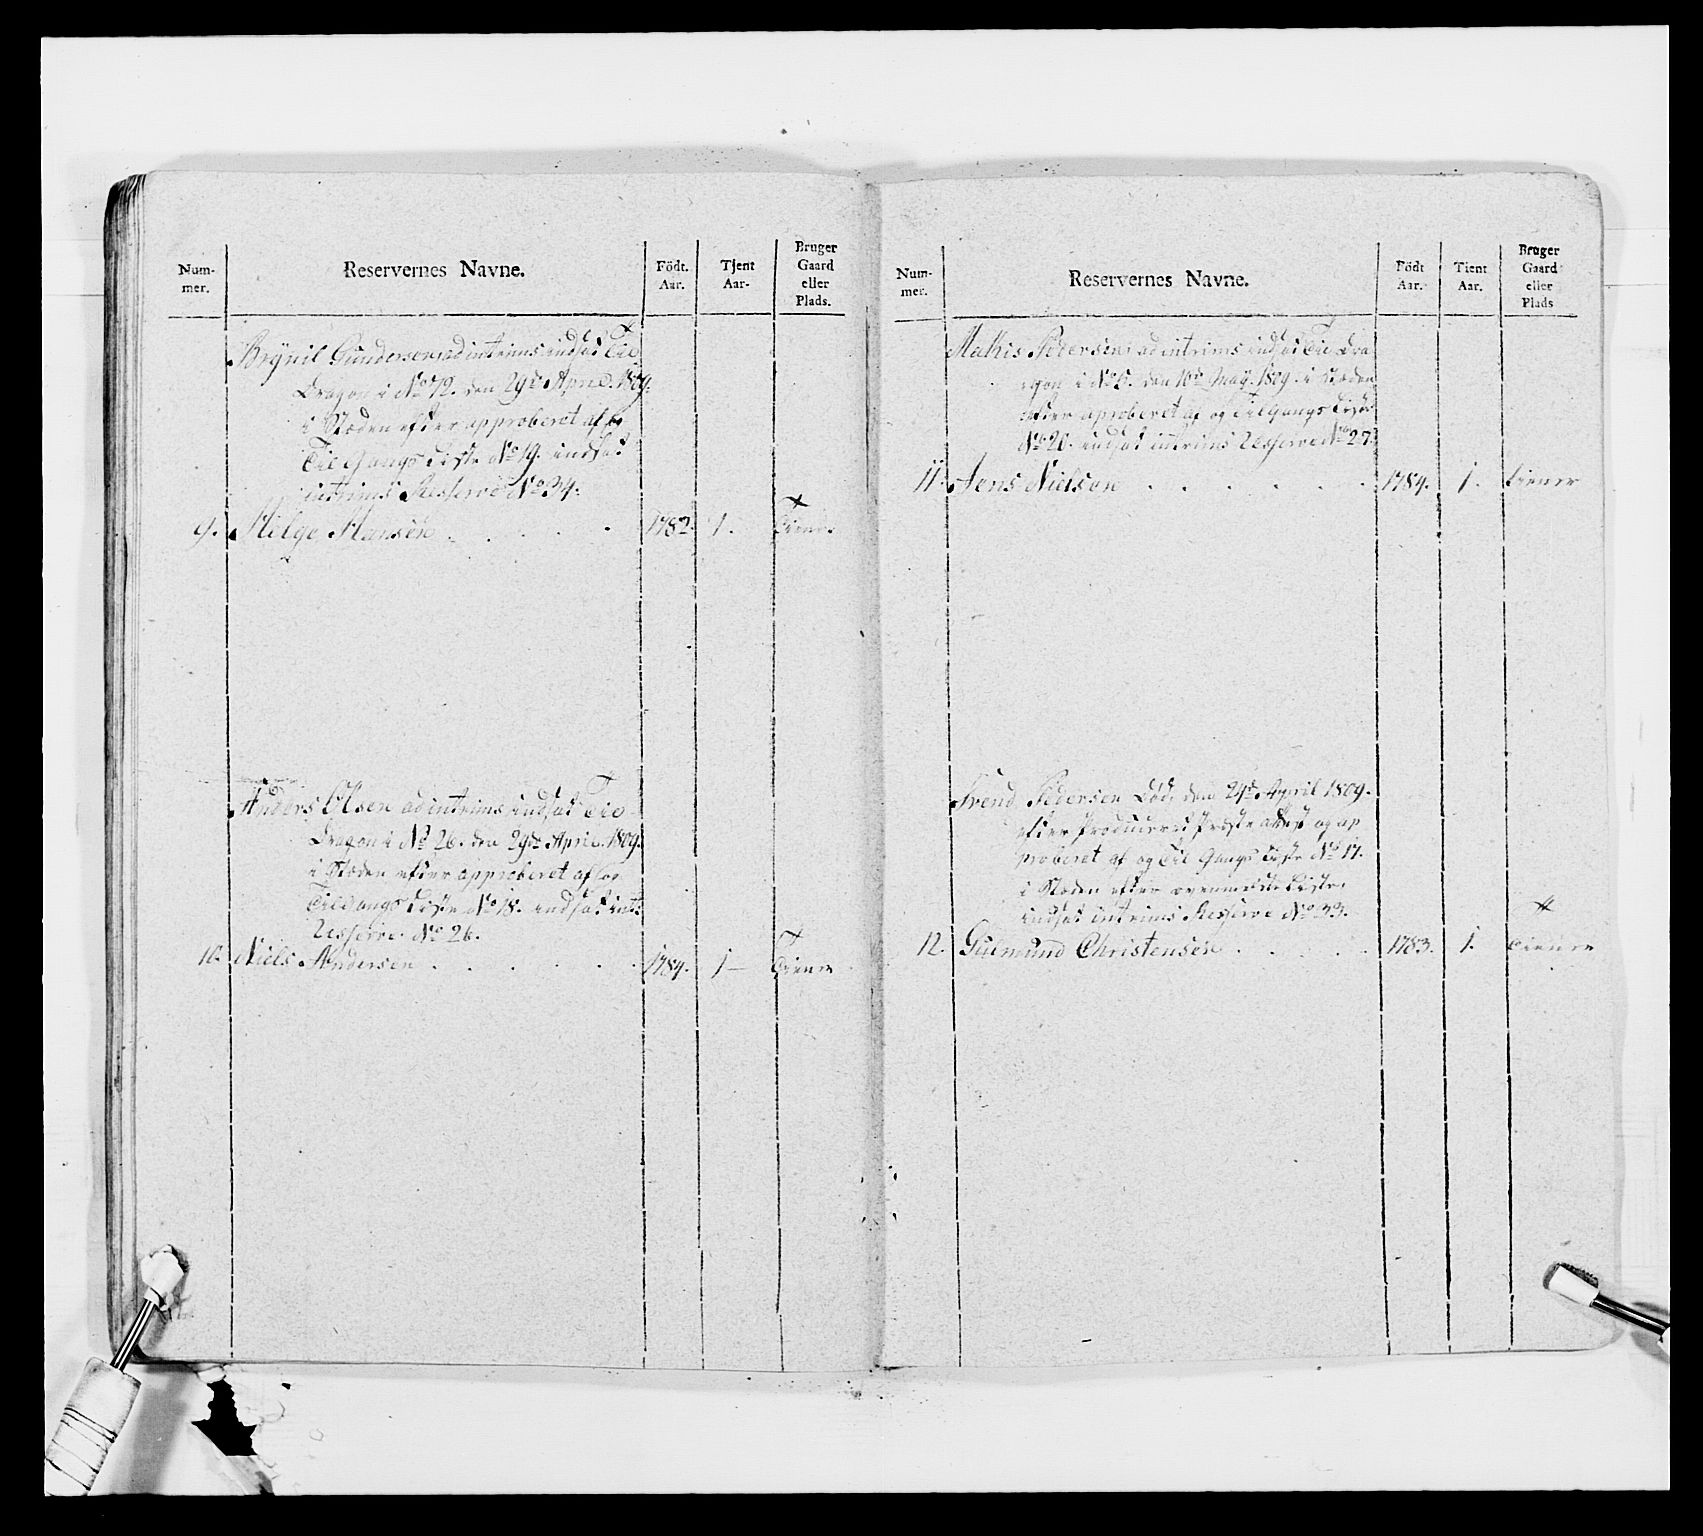 Num-
mer.
Reservernes Navne.
Födt.
Aar.
Tjent
Aar.
Bruger
Gaard
eller
Plads.
Brynil Gundersen, ad intrims indsat Til
Dragon i No 72. den 29de April. 1809.
i Stæden efter approberet af
Til Gangs Liste No 19. indsat
intrims Resserve No 34.
9. Hilge Hansen 1782. 1. Tiener
Anders Olsen ad intrims indsat Til
Dragon i No 26. den 29de April. 1809.
i Stæden efter approberet af
Til Gangs Liste No 18. indsat int:
Resserve. No 26.
10. Niels Andersen 1784. 1 — Tiener
Num-
mer.
Reservernes Navne.
Födt
Aar.
Tient
Aar.
Bruger
Gaard
eller
Plads
Pedersen, ad intrims indsat Til Dra
gon i No 5. den 10de May. 1809. i Stæden
efter aproberet af og Til Gangs Liste
No 20. indsat intrims Resserve No 27.
11. Jens Nielsen 1784. 1. tiener
Svend Pedersen Död, den 24de April 1809.
efter Produceret Præste attest og ap
proberet af og Til Gangs Liste No 17.
i Stæden efter ovenmeldte Liste.
indsat intrims Resserve No 33.
12. Gulmund Christensen 1783. 1. tienere